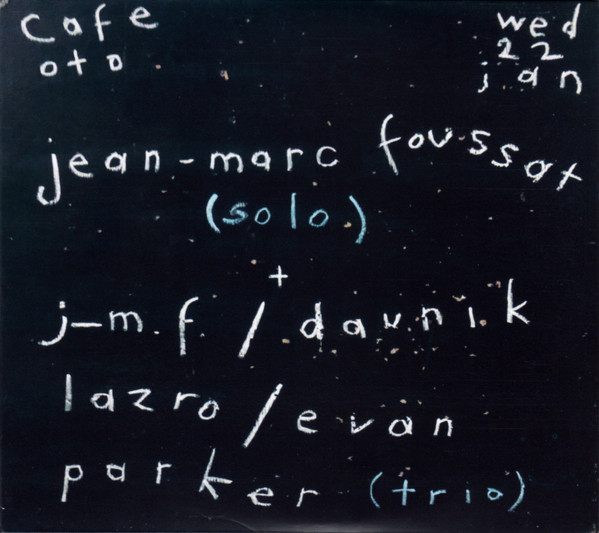 cafe wed
oto 22
jan
jean-marc foussat
(solo.)
+
j-m.f. / daunik
lazro / evan
parker (trio)